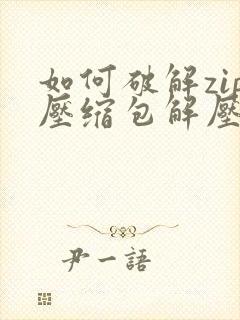 如何破解zip
壓缩包解壓
尹一語